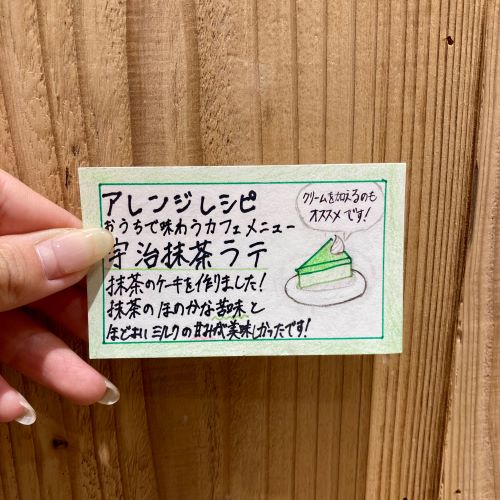 アレンジレシピ
おうちで味わうカフェメニュー
宇治抹茶ラテ
抹茶のケーキを作りました!
抹茶のほのかな苦味と
ほどよいミルクの甘みが美味しかったです!
クリームを加えるのも
オススメです!